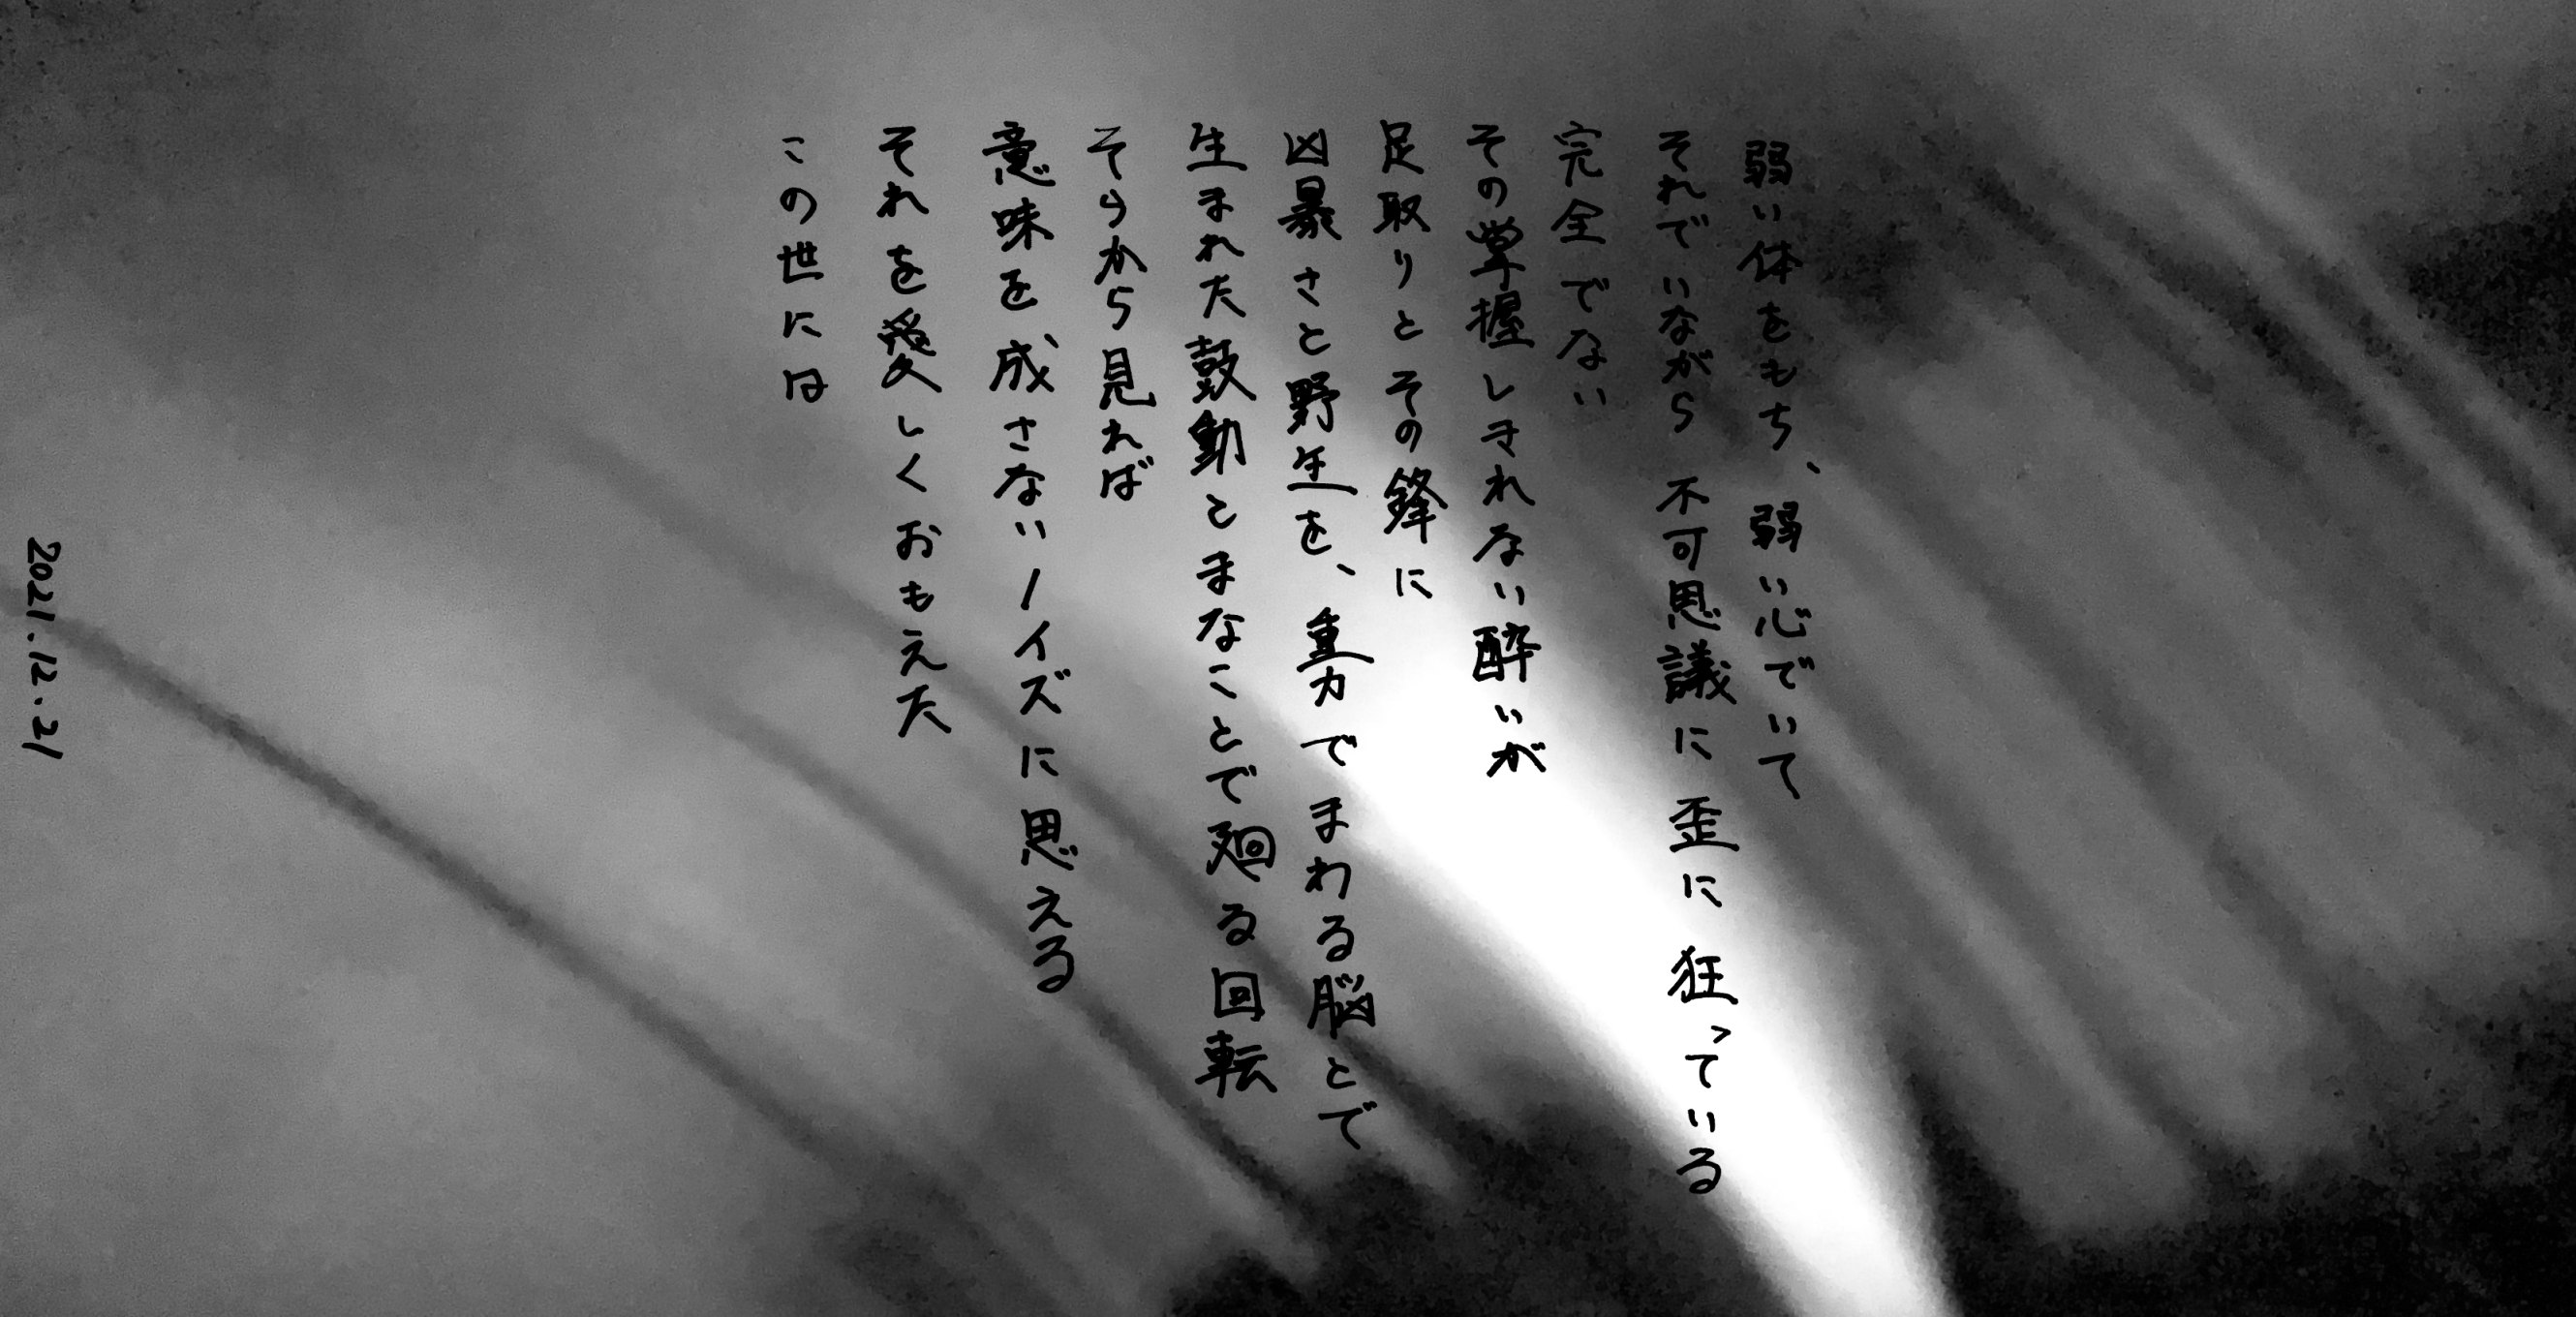 弱い体をもち、弱い心でいて
それでいながら 不可思議に 歪に 狂っている
完全でない
その掌握しきれない酔いが
足取りとその鋒に
凶暴さと野生を、重力でまわる脳とで
生まれた鼓動とまなことで廻る回転
そらから見れば
意味を成さないノイズに思える
それを愛しくおもえた
この世には
2021.12.21